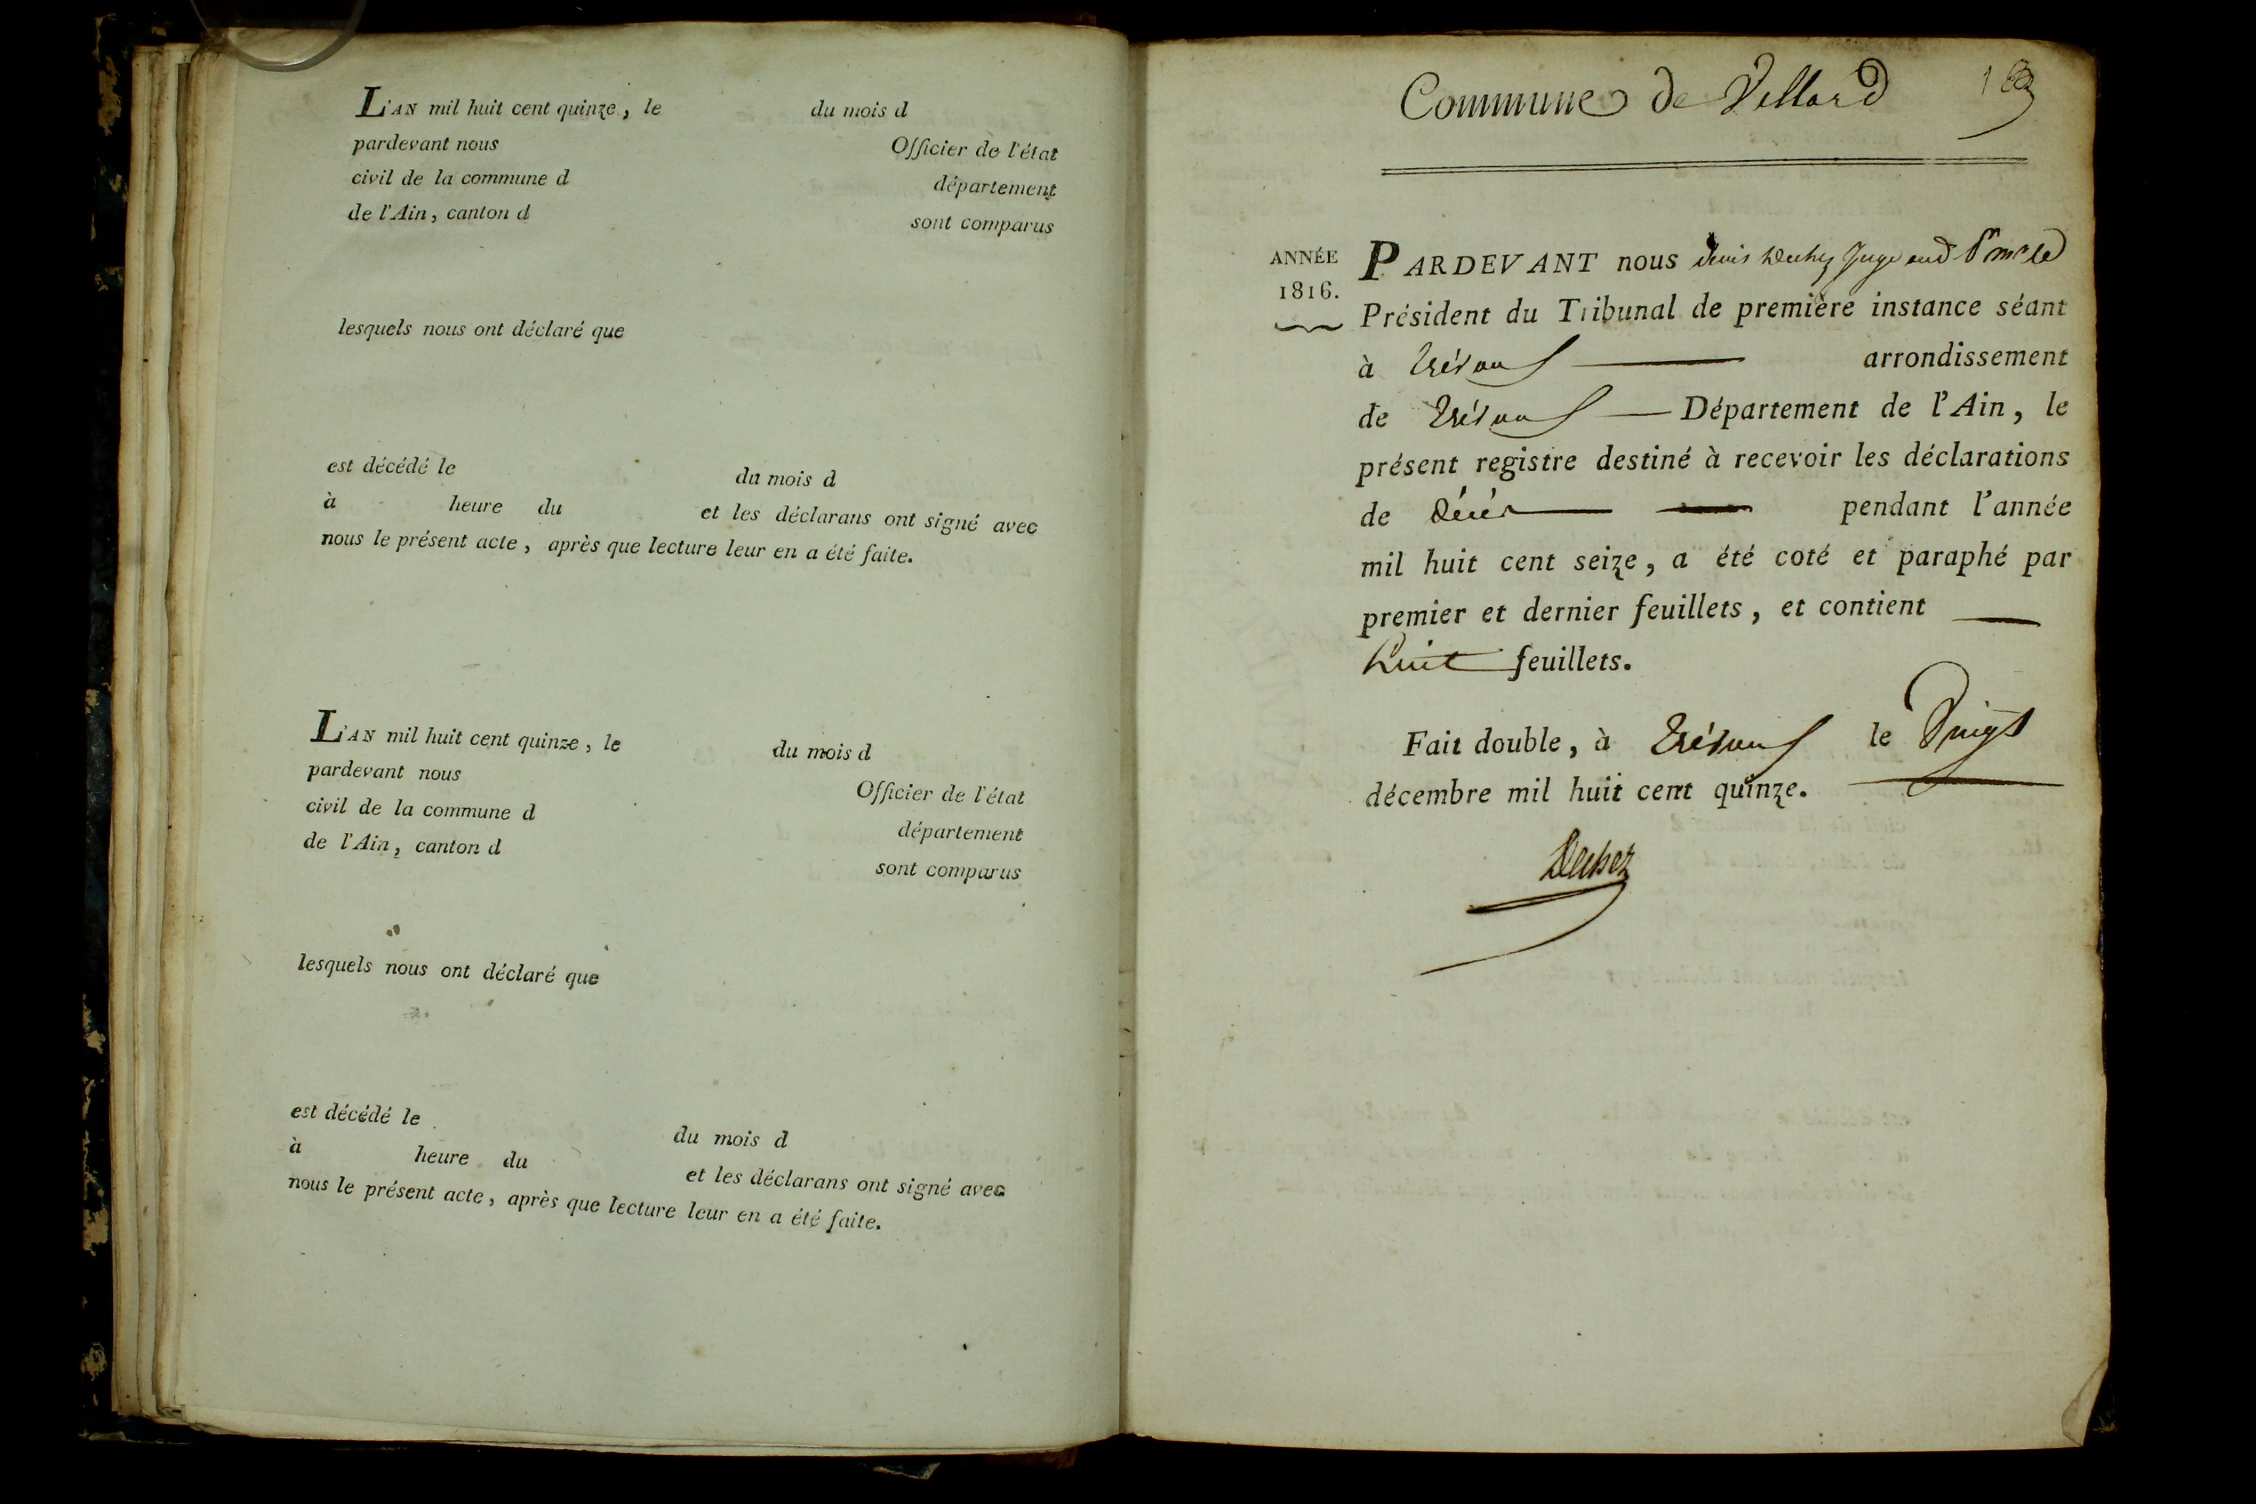 L'AN mil huit cent quinze, le du mois d
pardevant nous Officier de l'état
civil de la commune d département
de l'Ain, canton d sont comparus
lesquels nous ont déclaré que
est décédé le du mois d
à heure du et les déclarans ont signé avec
nous le présent acte, après que lecture leur en a été faite.
L'AN mil huit cent quinze, le du mois d
pardevant nous Officier de l'état
civil de la commune d département
de l'Ain, canton d sont comparus
lesquels nous ont déclaré que
est décédé le du mois d
à heure du et les déclarans ont signé avec
nous le présent acte, après que lecture leur en a été faite.
Commune de Villard
ANNÉE
1816.
PARDEVANT nous Denis Dechez Juge
Président du Tribunal de première instance séant
à Trévoux arrondissement
de Trévoux Département de l'Ain, le
présent registre destiné à recevoir les déclarations
de Décès pendant l'année
mil huit cent seize, a été coté et paraphé par
premier et dernier feuillets, et contient
huit feuillets.
Fait double, à Trévoux le vingt
décembre mil huit cent quinze.
Dechez